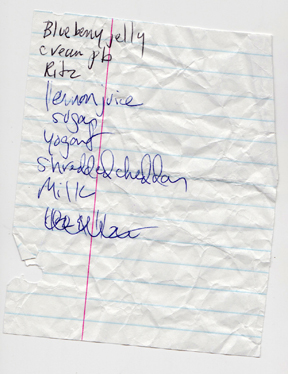 Blueberry jelly
cream pb
Ritz
lemon juice
sugar
yogart
shredded cheddar
Milk